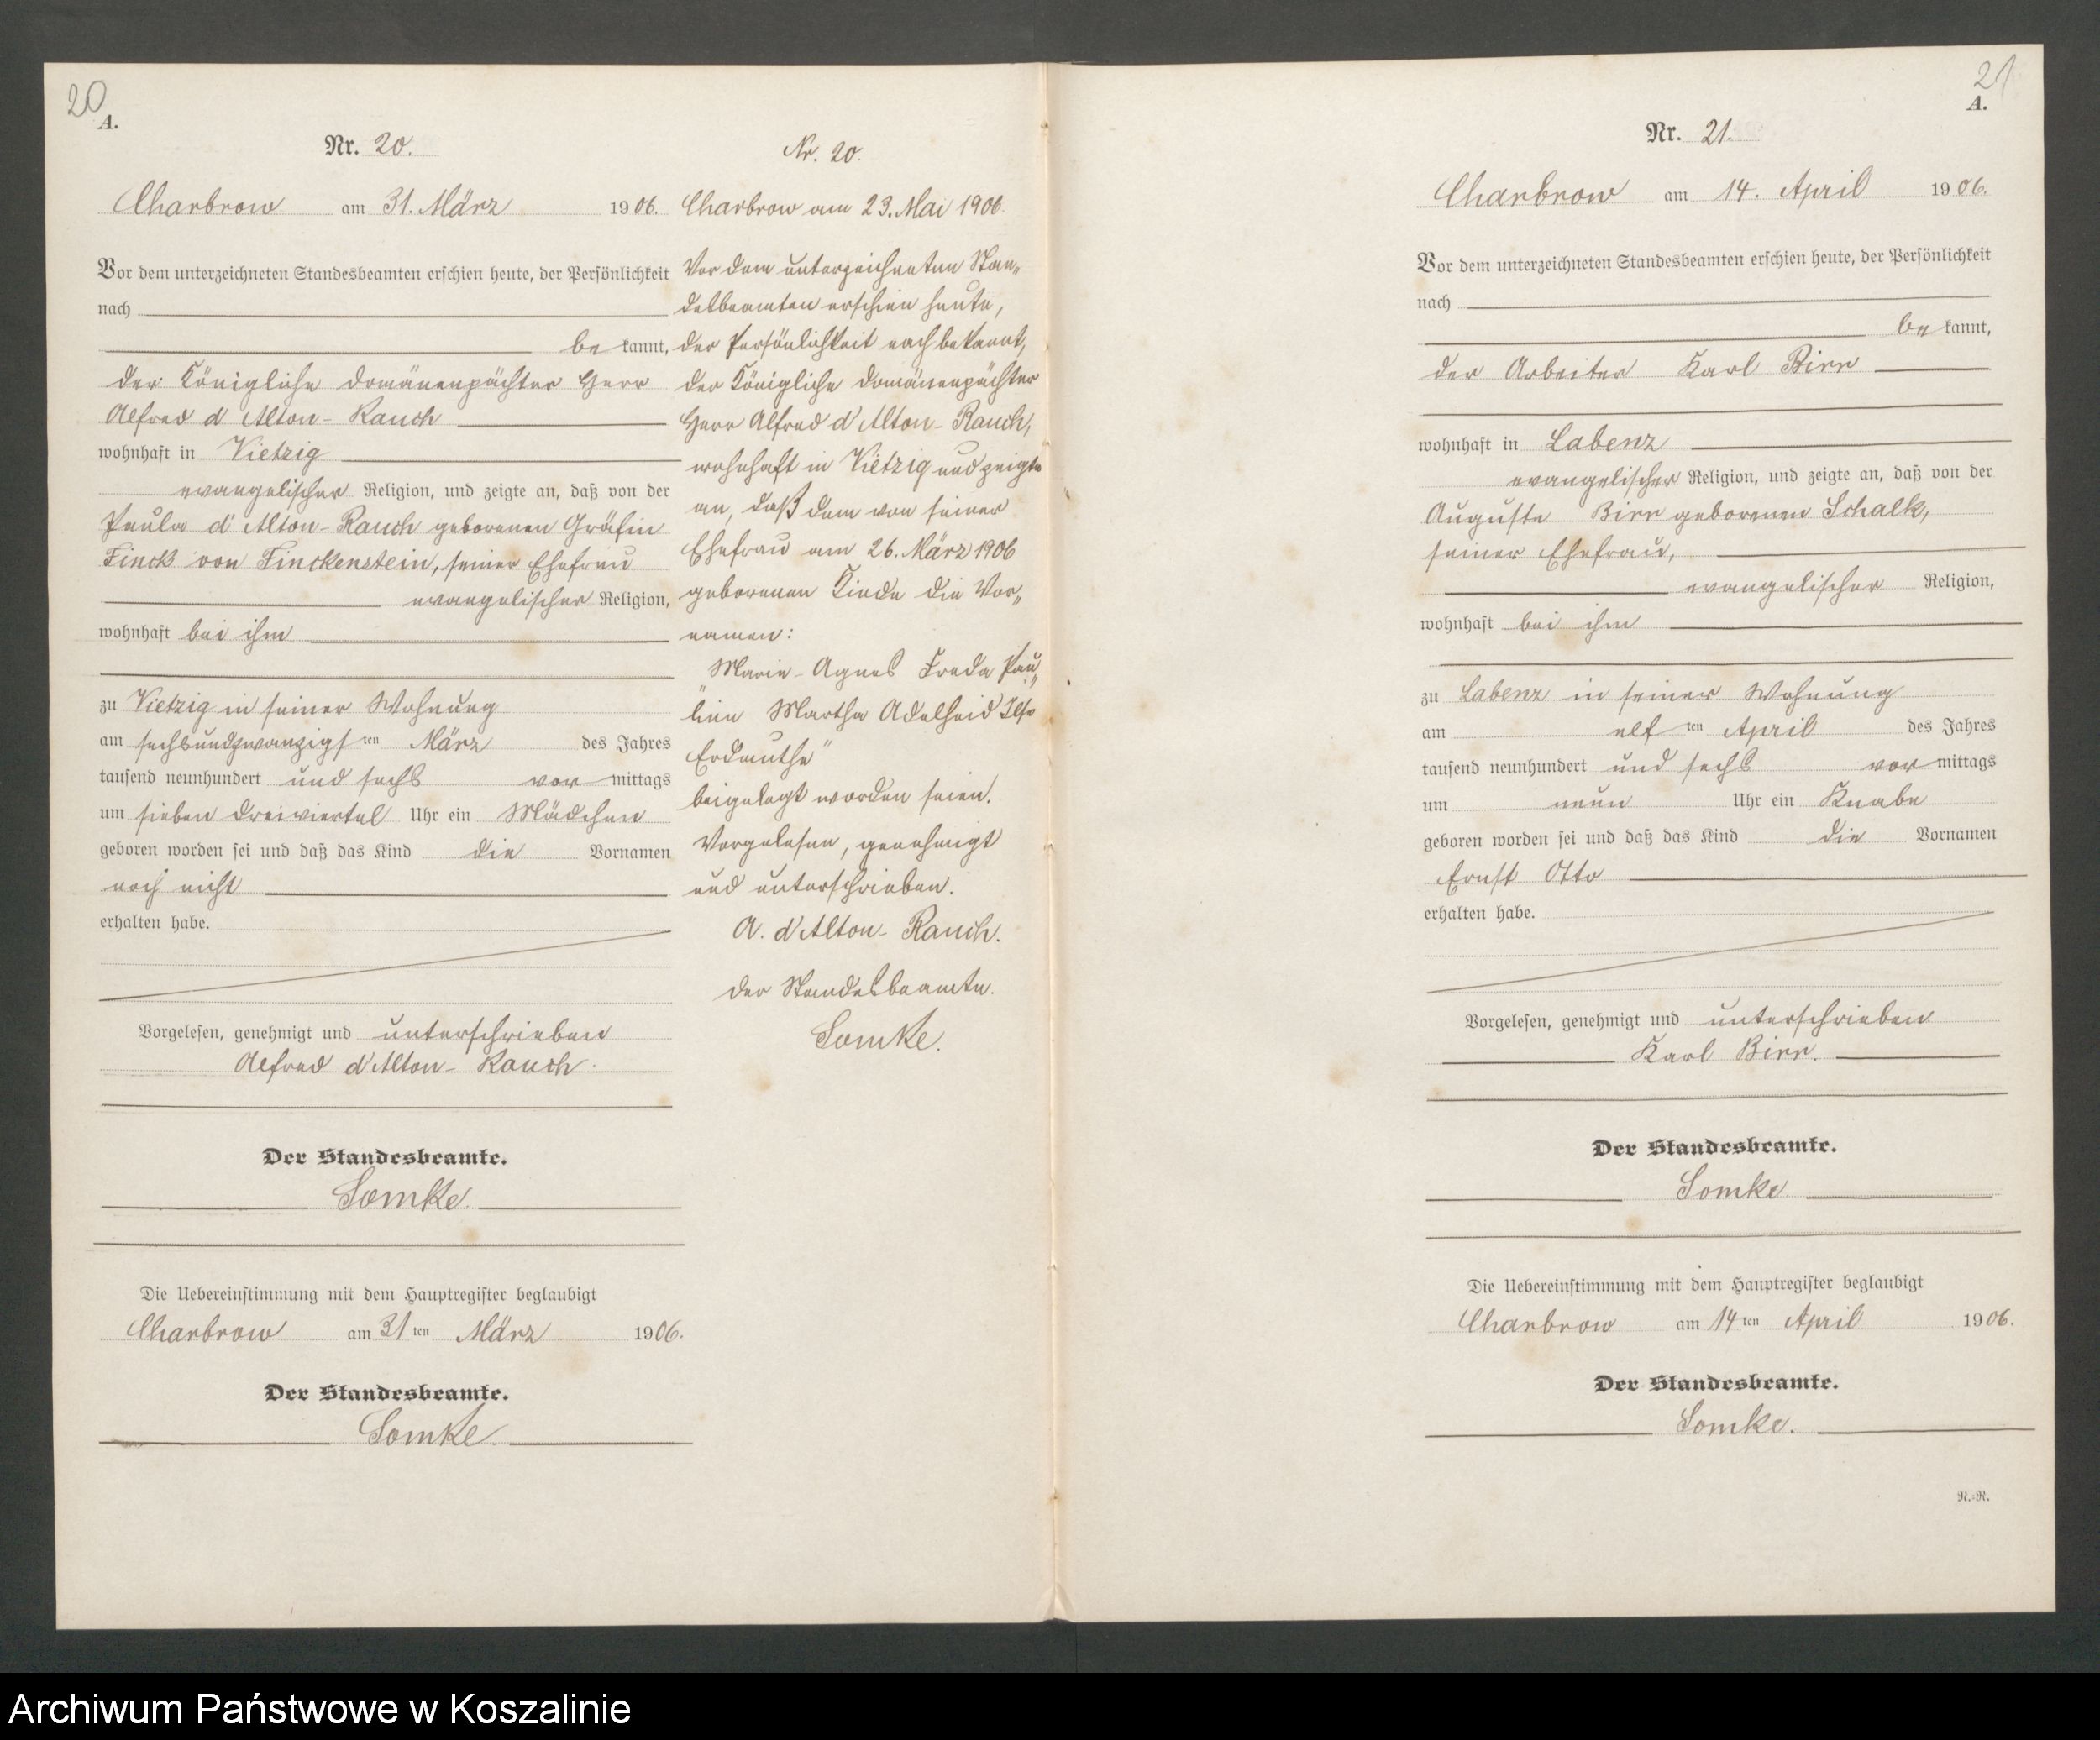 20
A.
Nr. 20.
Charbrow am 31. März 1906.
Vor dem unterzeichneten Standesbeamten erschien heute, der Persönlichkeit
nach
be kannt,
der Königliche Domänenpächter Herr
Alfred d'Alton-Rauch
wohnhaft in Vietzig
evangelischer Religion, und zeigte an, daß von der
Paula d'Alton-Rauch geborenen Gräfin
Finck von Finckenstein, seiner Ehefrau
evangelischer Religion,
wohnhaft bei ihm
zu Vietzig in seiner Wohnung
am sechsundzwanzigsten März des Jahres
tausend neunhundert und sechs vormittags
um sieben dreiviertel Uhr ein Mädchen
geboren worden sei und daß das Kind die Vornamen
noch nicht
erhalten habe.
Vorgelesen, genehmigt und unterschrieben
Alfred d'Alton-Rauch.
Der Standesbeamte.
Somke.
Die Uebereinstimmung mit dem Hauptregister beglaubigt
Charbrow am 31ten März 1906.
Der Standesbeamte.
Somke.
Nr. 20.
Charbrow am 23. Mai 1906.
Vor dem unterzeichneten Stan„
desbeamten erschien heute,
der Persönlichkeit nach bekannt,
der Königliche Domänenpächter
Herr Alfred d'Alton-Rauch,
wohnhaft in Vietzig und zeigte
an, daß dem von seiner
Ehefrau am 26. März 1906
geborenen Kinde die Vor„
namen:
„Marie-Agnes Freda Pau„
line Martha Adelheid Ilse
Erdmuthe"
beigelegt worden seien.
Vorgelesen, genehmigt
und unterschrieben.
A. d'Alton-Rauch.
Der Standesbeamte.
Somke.
21
A.
Nr. 21.
Charbrow am 14. April 1906.
Vor dem unterzeichneten Standesbeamten erschien heute, der Persönlichkeit
nach
be kannt,
der Arbeiter Karl Birr
wohnhaft in Labenz
evangelischer Religion, und zeigte an, daß von der
Auguste Birr geborenen Schalk,
seiner Ehefrau,
evangelischer Religion,
wohnhaft bei ihm
zu Labenz in seiner Wohnung
am elften April des Jahres
tausend neunhundert und sechs vormittags
um neun Uhr ein Knabe
geboren worden sei und daß das Kind die Vornamen
Ernst Otto
erhalten habe.
Vorgelesen, genehmigt und unterschrieben
Karl Birr.
Der Standesbeamte.
Somke
Die Uebereinstimmung mit dem Hauptregister beglaubigt
Charbrow am 14ten April 1906.
Der Standesbeamte.
Somke.
R. R.
Archiwum Państwowe w Koszalinie